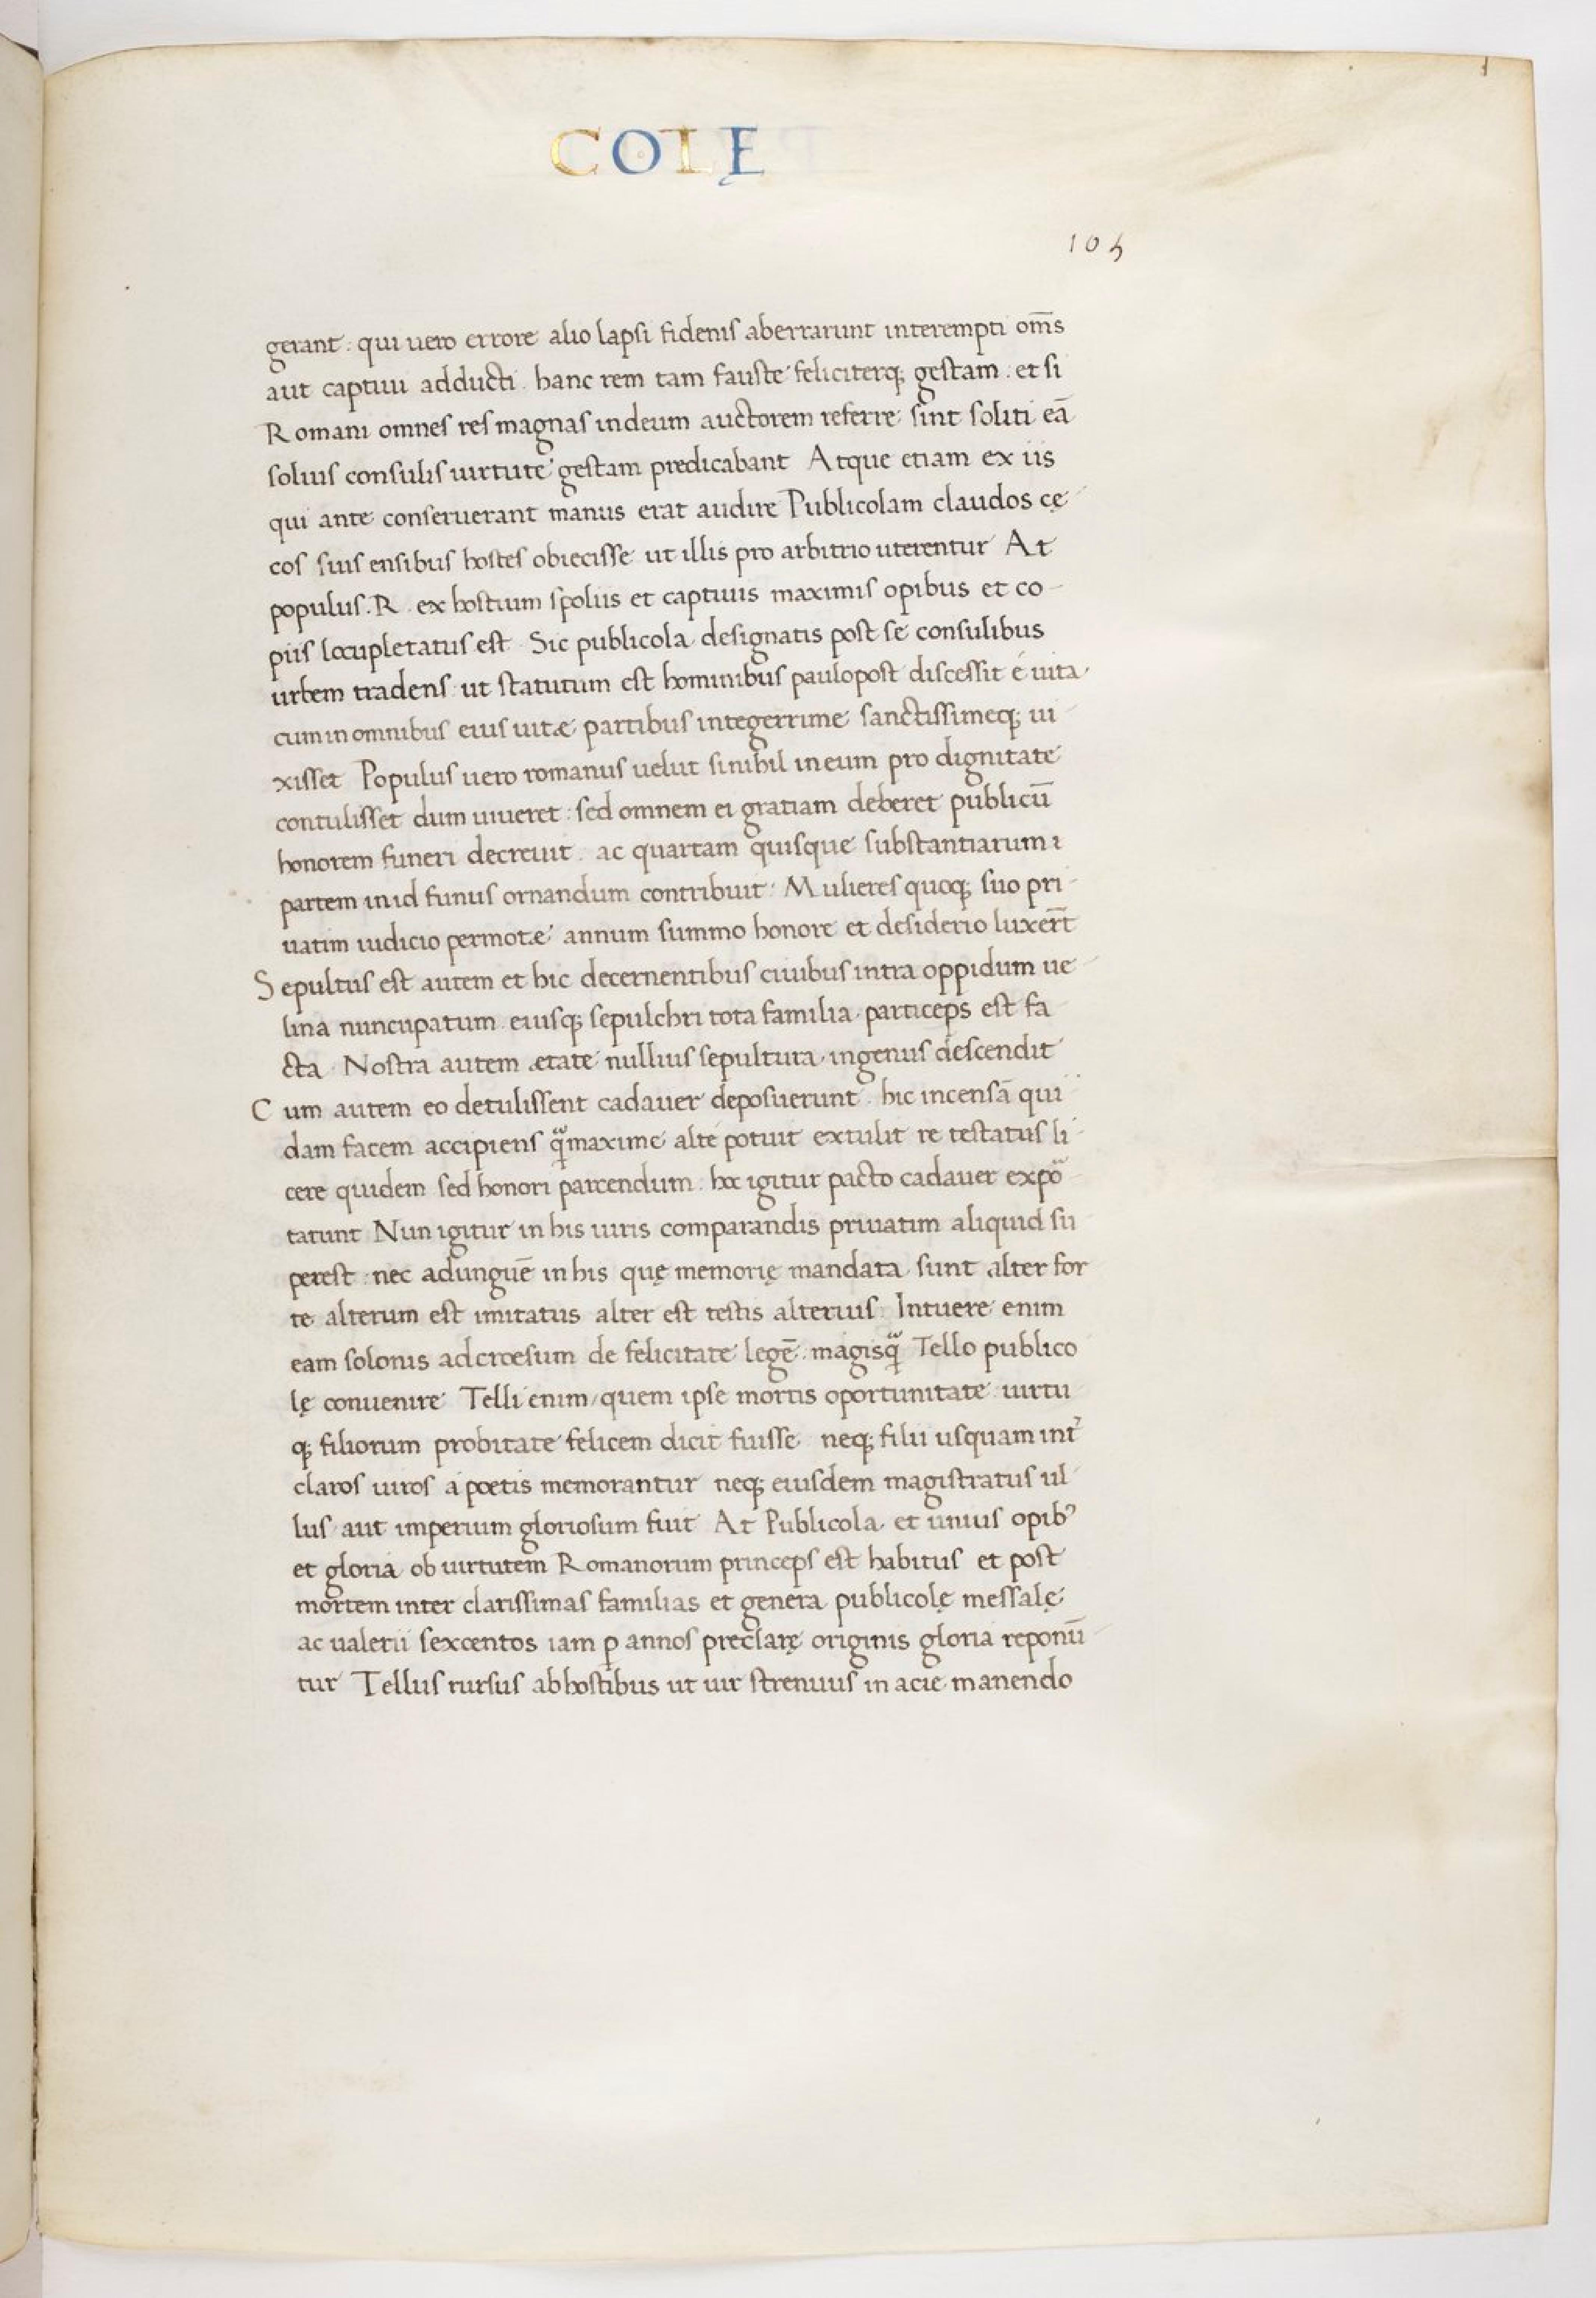 COLĘ
105
gerant : qui uero errore alio lapsi fidenis aberrarunt interempti om̄s
aut captiui adducti . hanc rem tam fauste feliciterq; gestam . et si
Romani omnes res magnas indeum auctorem referre sint soliti eā
solius consulis uirtute gestam predicabant Atque etiam ex iis
qui ante conseruerant manus erat audire Publicolam claudos cę
cos suis ensibus hostes obiecisse ut illis pro arbitrio uterentur At
populus . R . ex hostium spoliis et captiuis maximis opibus et co-
piis locupletatus est . Sic publicola designatis post se consulibus
urbem tradens ut statutum est hominibus paulopost discessit é uita .
cum in omnibus eius uitæ partibus integerrime sanctissimeq; ui
xisset Populus uero romanus uelut sinihil in eum pro dignitate
contulisset dum uiueret : sed omnem ei gratiam deberet publicū
honorem funeri decreuit . ac quartam quisque substantiarum
partem in id funus ornandum contribuit : Mulieres quoq; suo pri
uatim iudicio permotæ annum summo honore et desiderio luxer̄t
Sepultus est autem et hic decernentibus ciuibus intra oppidum ue
lina nuncupatum . eiusq; sepulchri tota familia particeps est fa
cta . Nostra autem ætate nullius sepultura ingenus descendit
Cum autem eo detulissent cadauer deposuerunt . hic incensā qui
dam facem accipiens q̄maxime alte potuit extulit re testatus li
cere quidem sed honori parcendum . hoc igitur pacto cadauer expo
tatunt Nun igitur in his uiris comparandis priuatim aliquid su
perest : nec adunguē in his quę memorię mandata sunt alter for
te alterum est imitatus alter est testis alterius : Intuere enim
eam solonis adcroesum de felicitate legē . magisq̄ Tello publico
lę conuenire Telli enim / quem ipse mortis oportunitate uirtu
q; filiorum probitate felicem dicit fuisse neq; filii usquam int̉
claros uiros á poetis memorantur neq; eiusdem magistratus ul
lus aut imperium gloriosum fuit At Publicola et unius opib᾿
et gloria ob uirtutem Romanorum princeps est habitus et post
mortem inter clarissimas familias et genera publicolę messalę
ac ualerii sexcentos iam ꝑ annos preclarę originis gloria reponū
tur Tellus rursus ab hostibus ut uir strenuus in acie manendo